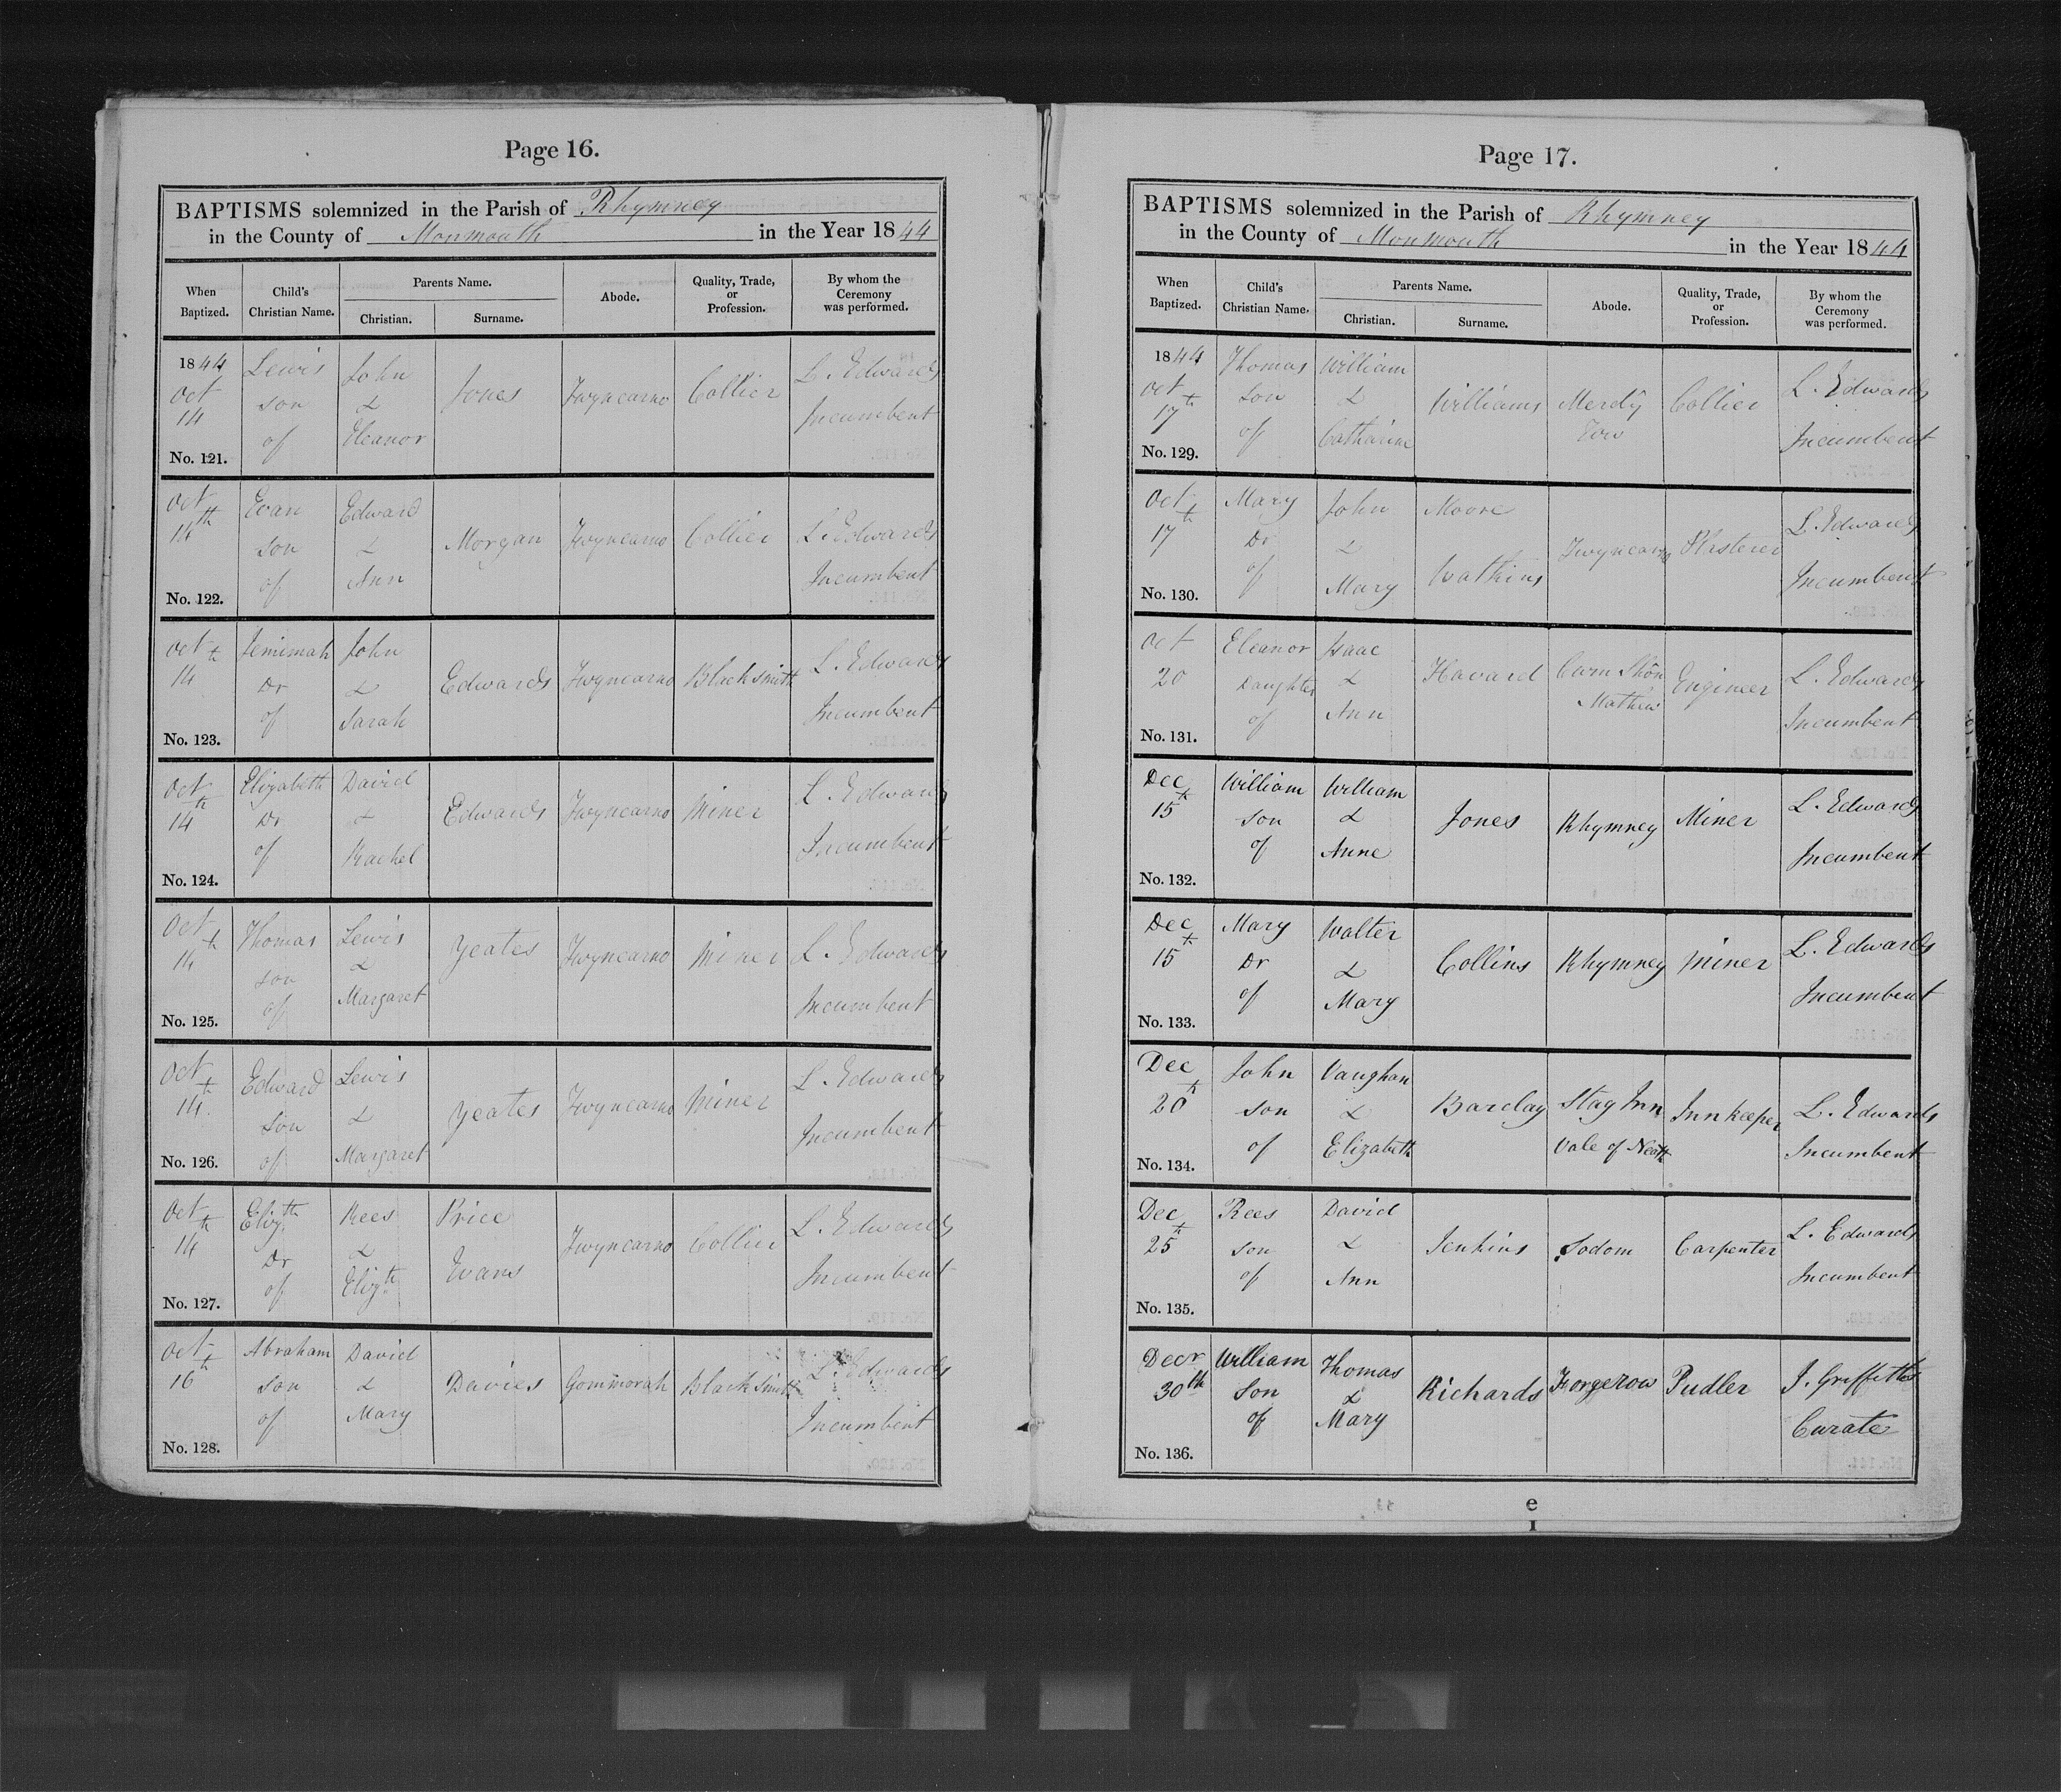 Page 16.
BAPTISMS solemnized in the Parish of Rhymney
in the County of Monmouth in the Year 1844
When Baptized. Child's Christian Name. Parents Name. Christian. Surname. Abode. Quality, Trade, or Profession. By whom the Ceremony was performed.
1844 Oct 14 No. 121. Lewis son of John & Eleanor Jones Twyncarno Collier L. Edwards Incumbent
Oct 14th No. 122. Evan son of Edward & Ann Morgan Twyncarno Collier L. Edwards Incumbent
Oct 14th No. 123. Jemimah Dr of John & Sarah Edwards Twyncarno Blacksmith L. Edwards Incumbent
Oct 14th No. 124. Elizabeth Dr of David & Rachel Edwards Twyncarno Miner L. Edwards Incumbent
Oct 14th No. 125. Thomas son of Lewis & Margaret Yeates Twyncarno Miner L. Edwards Incumbent
Oct 14th No. 126. Edward son of Lewis & Margaret Yeates Twyncarno Miner L. Edwards Incumbent
Oct 14th No. 127. Elizth Dr of Rees & Elizth Price Evans Twyncarno Collier L. Edwards Incumbent
Oct 16th No. 128. Abraham son of David & Mary Davies Gommorah Blacksmith L. Edwards Incumbent
Page 17.
BAPTISMS solemnized in the Parish of Rhymney
in the County of Monmouth in the Year 1844
When Baptized. Child's Christian Name. Parents Name. Christian. Surname. Abode. Quality, Trade, or Profession. By whom the Ceremony was performed.
1844 Oct 17th No. 129. Thomas son of William & Catharine Williams Collier L. Edwards Incumbent
Oct 17th No. 130. Mary Dr of John & Mary Moore Watkins Twyncarno Plasterer L. Edwards Incumbent
Oct 20 No. 131. Eleanor Daughter of Isaac & Ann Havard Cwm Shôn Mathew Engineer L. Edwards Incumbent
Dec 15th No. 132. William son of William & Anne Jones Rhymney Miner L. Edwards Incumbent
Dec 15th No. 133. Mary Dr of Walter & Mary Collins Rhymney Miner L. Edwards Incumbent
Dec 20th No. 134. John son of Vaughan & Elizabeth Barclay Stag Inn Vale of Neath Innkeeper L. Edwards Incumbent
Dec 25th No. 135. Rees son of David & Ann Jenkins Sodom Carpenter L. Edwards Incumbent
Decr 30th No. 136. William Son of Thomas & Mary Richards Forgerow Pudler J. Griffiths Curate
e
1